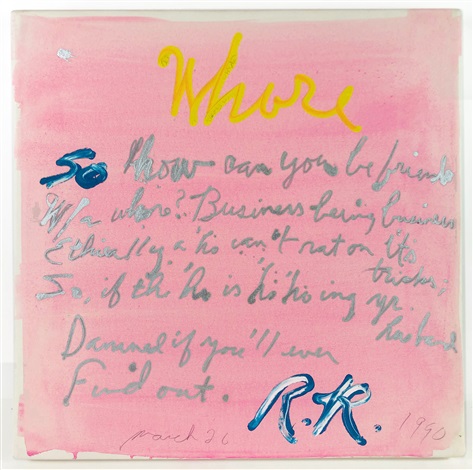 Whore
So how can you be friends
W/a whore? Business being business
Ethically a 'ho can't rat on its
tricks;
So, if th' 'ho is 'ho'ing yr.
husband
Damned if you'll ever
Find out.
R.R.
march 26 1990